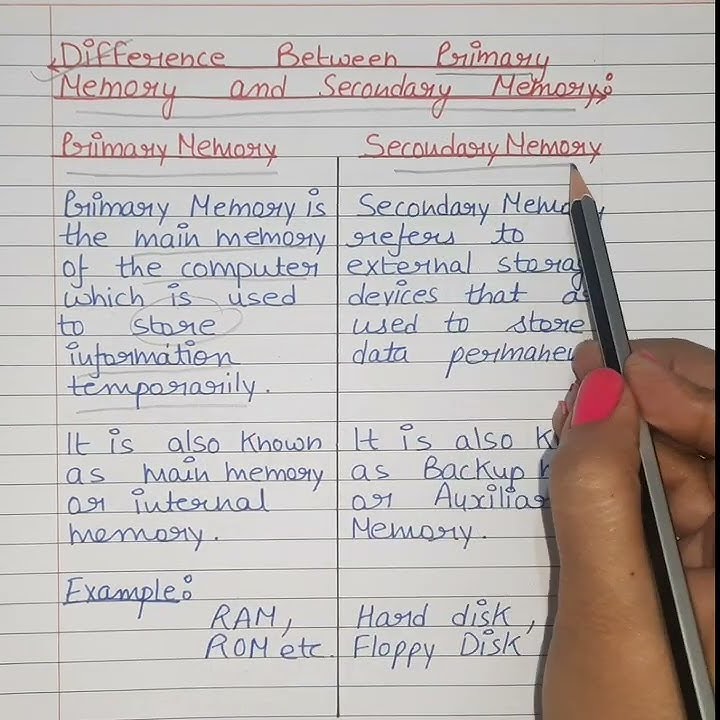 Difference Between Primary
Memory and Secondary Memory:
Primary Memory
Primary Memory is
the main memory
of the computer
which is used
to store
information
temporarily.
It is also known
as main memory
or internal
memory.
Example:
RAM,
ROM etc.
Secondary Memory
Secondary Memory
refers to
external storag
devices that
used to store
data permanen
It is also
as Backup
or Auxilia
Memory.
Hard disk,
Floppy Disk